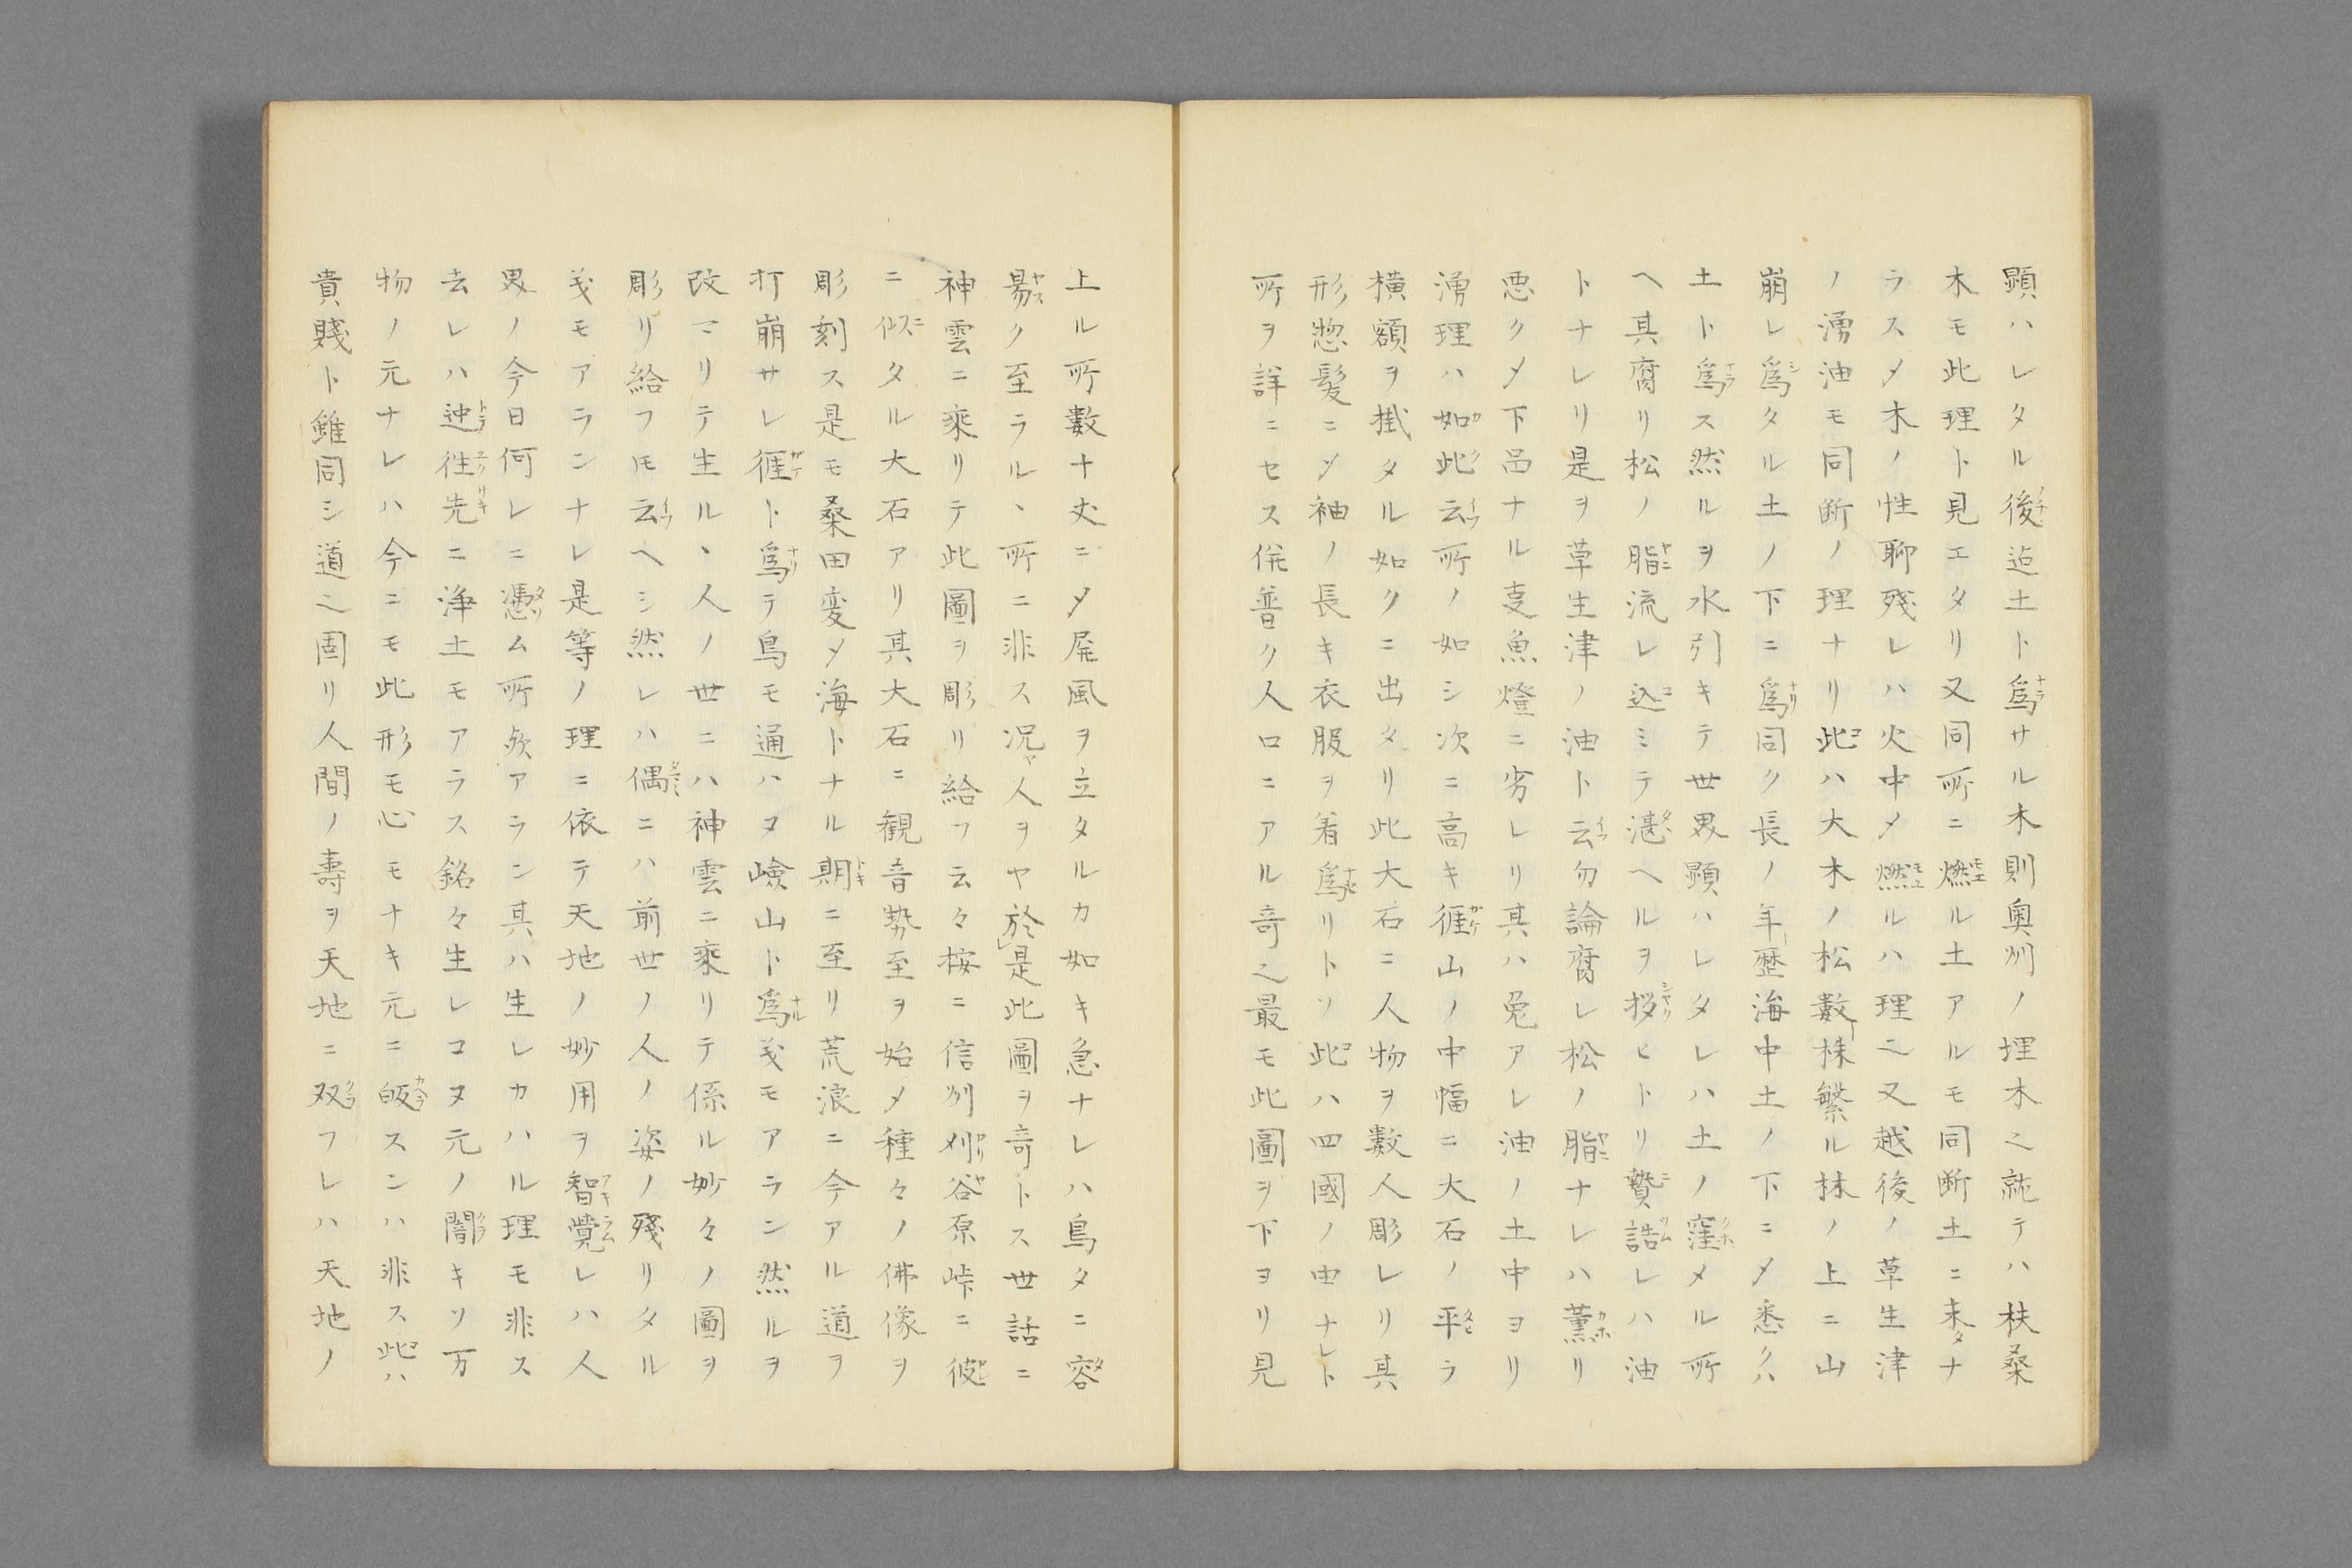 顕ハレタル後迠土ト爲サル木則奥州ノ埋木之就テハ扶桑
木モ此理ト見エタリ又同所ニ燃ル土アルモ同断土ニ未タナ
ラスメ木ノ性聊殘レハ火中メ燃ルハ理之又越後ノ草生津
ノ湧油モ同断ノ理ナリ此ハ大木ノ松數株繁ル林ノ上ニ山
崩レ爲タル土ノ下ニ爲同ク長ノ年歴海中土ノ下ニメ悉クハ
土ト爲ス然ルヲ水引キテ世界顕ハレタレハ土ノ窪メル所
ヘ其腐リ松ノ脂流レ込ミテ湛ヘルヲ拶ヒトリ贄誥レハ油
トナレリ是ヲ草生津ノ油ト云勿論腐レ松ノ脂ナレハ薫リ
悪クメ下品ナル㕝魚燈ニ劣レリ其ハ兎アレ油ノ土中ヨリ
湧理ハ如此云所ノ如シ次ニ高キ徃山ノ中幅ニ大石ノ平ラ
横額ヲ掛タル如クニ出タリ此大石ニ人物ヲ數人彫レリ其
形惣髪ニメ袖ノ長キ衣服ヲ着爲リトソ此ハ四國ノ由ナレト
所ヲ詳ニセス併普ク人口ニアル竒之最モ此圖ヲ下ヨリ見
上ル所數十丈ニメ屏風ヲ立タルカ如キ急ナレハ鳥タニ容
易ク至ラルヽ所ニ非ス况ヤ人ヲヤ於是此圖ヲ竒トス世話ニ
神雲ニ乘リテ此圖ヲ彫リ給フ云々桉ニ信州刈谷原峠ニ彼
ニ似タル大石アリ其大石ニ観音勢至ヲ始メ種々ノ佛像ヲ
彫刻ス是モ桑田変メ海トナル期ニ至リ荒浪ニ今アル道ヲ
打崩サレ徃ト爲テ鳥モ通ハヌ嶮山ト爲義モアラン然ルヲ
改マリテ生ルヽ人ノ世ニハ神雲ニ乘リテ係ル妙々ノ圖ヲ
彫リ給フ𪜈云ヘシ然レハ偶ニハ前世ノ人ノ姿ノ殘リタル
義モアランナレ是等ノ理ニ依テ天地ノ妙用ヲ智覺レハ人
界ノ今日何レニ憑ム所歟アラン其ハ生レカハル理モ非ス
去レハ迚徃先ニ浄土モアラス銘々生レコヌ元ノ闇キソ万
物ノ元ナレハ今ニモ此形モ心モナキ元ニ皈スンハ非ス此ハ
貴賤ト雖同シ道之固リ人間ノ壽ヲ天地ニ双フレハ天地ノ